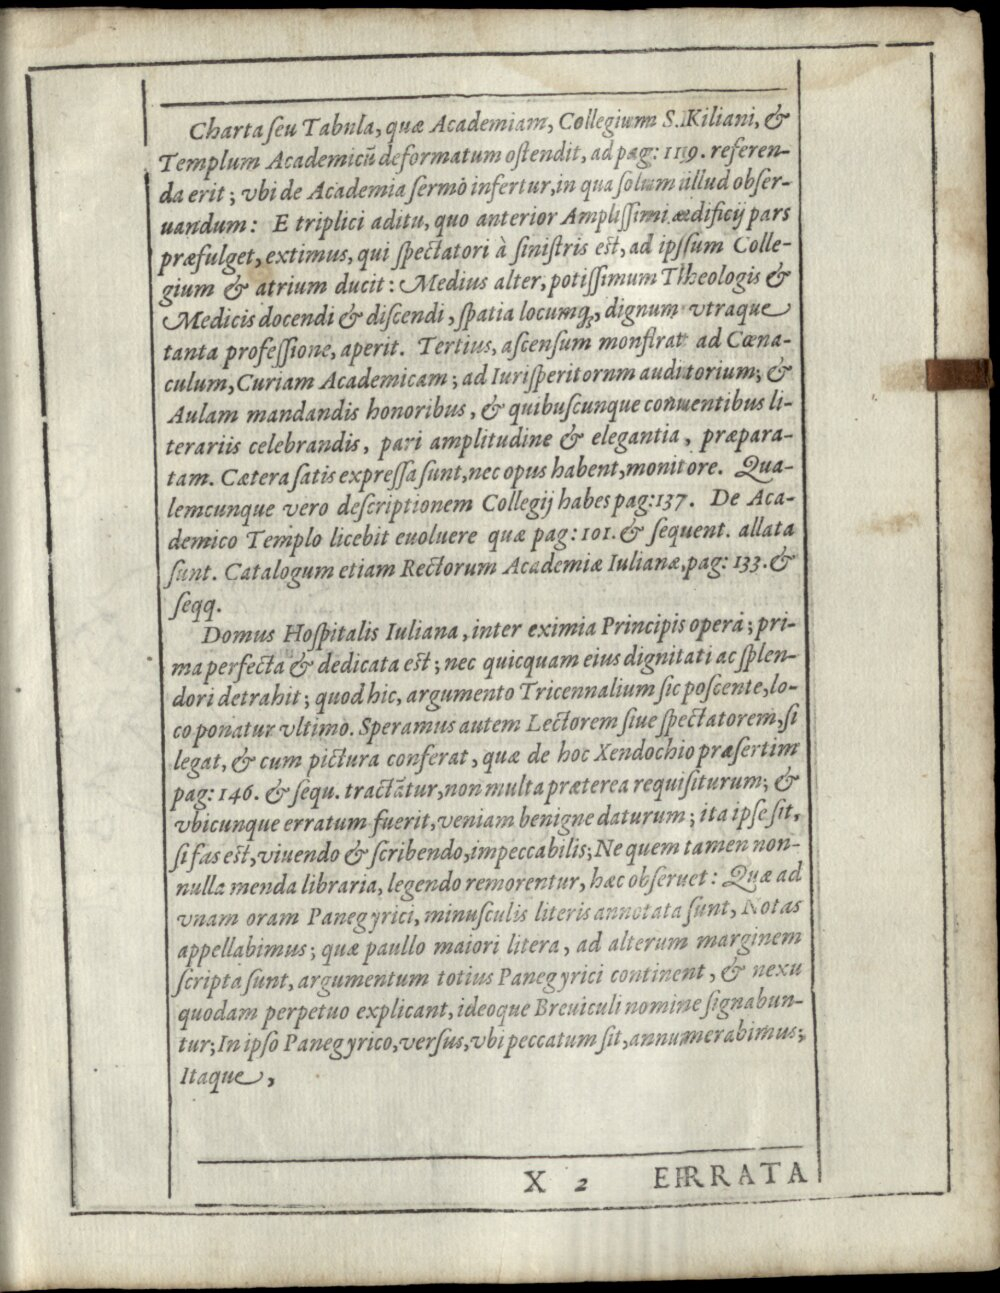 Charta seu Tabula, quæ Academiam, Collegium S. Kiliani, &
Templum Academicū deformatum ostendit, ad pag: 119. referen-
da erit; vbi de Academia sermo infertur, in qua solum illud obser-
uandum: E triplici aditu, quo anterior Amplissimi ædificij pars
præfulget, extimus, qui spectatori à sinistris est, ad ipssum Colle-
gium & atrium ducit: Medius alter, potissimum Theologis &
Medicis docendi & discendi, spatia locumq́;, dignum vtraque
tanta professione, aperit. Tertius, ascensum monstrat ad Cœna-
culum, Curiam Academicam; ad Iurisperitorum auditorium; &
Aulam mandandis honoribus, & quibuscunque conuentibus li-
terariis celebrandis, pari amplitudine & elegantia, præpara-
tam. Cætera satis expressa sunt, nec opus habent, monitore. Qua-
lemcunque vero descriptionem Collegij habes pag:137. De Aca-
demico Templo licebit euoluere quæ pag: 101. & sequent. allata
sunt. Catalogum etiam Rectorum Academiæ Iulianæ, pag: 133. &
seqq.
Domus Hospitalis Iuliana, inter eximia Principis opera; pri-
ma perfecta & dedicata est; nec quicquam eius dignitati ac splen-
dori detrahit; quod hic, argumento Tricennalium sic poscente, lo-
co ponatur vltimo. Speramus autem Lectorem siue spectatorem, si
legat, & cum pictura conferat, quæ de hoc Xendochio præsertim
pag: 146. & sequ. tractātur, non multa præterea requisiturum; &
vbicunque erratum fuerit, veniam benigne daturum; ita ipse sit,
si fas est, viuendo & scribendo, impeccabilis; Ne quem tamen non-
nulla menda libraria, legendo remorentur, hæc obseruet: Quæ ad
vnam oram Panegyrici, minusculis literis annotata sunt, Notas
appellabimus; quæ paullo maiori litera, ad alterum marginem
scripta sunt, argumentum totius Panegyrici continent, & nexu
quodam perpetuo explicant, ideoque Breuiculi nomine signabun-
tur; In ipso Panegyrico, versus, vbi peccatum sit, annumerabimus;
Itaque,
X 2 ERRATA